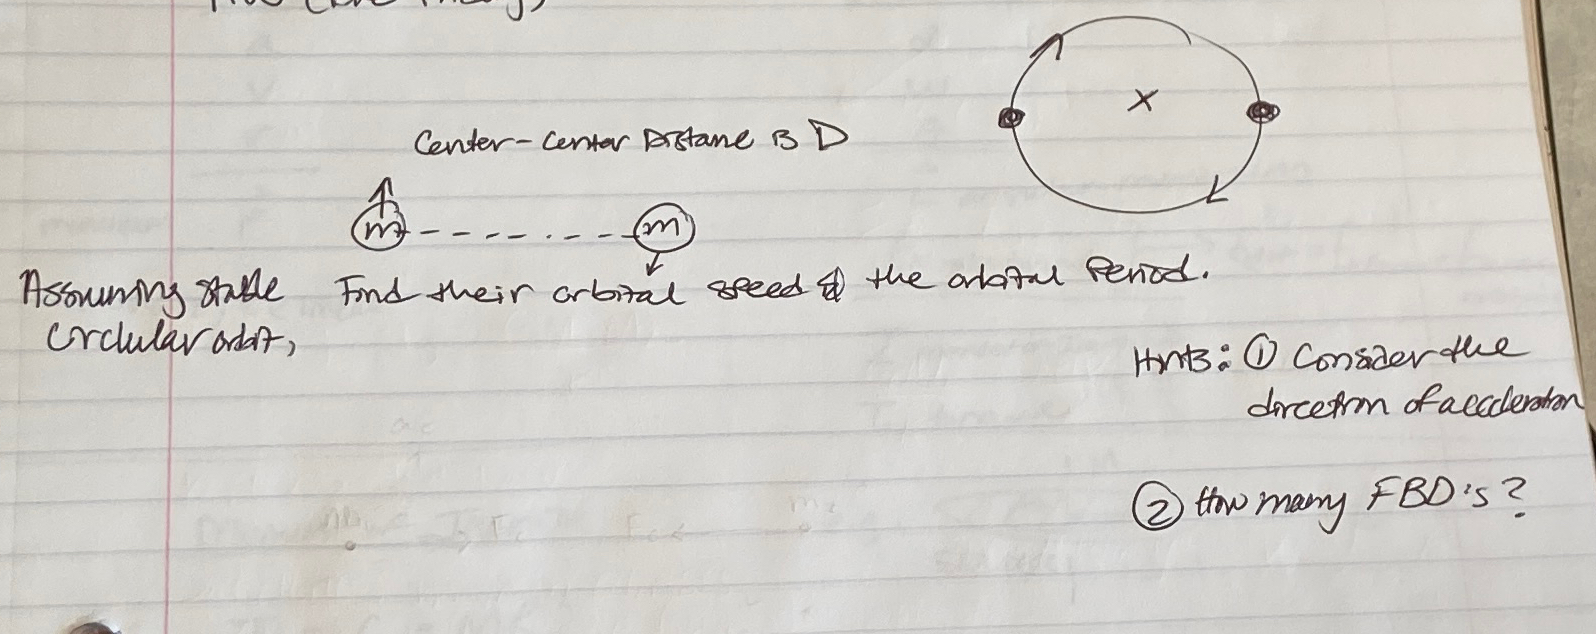 Center-Center Distance is D
m m
Assuming stable Find their orbital speed & the orbital Period.
Circlular orbit,
Hints: ① Consider the
direction of acceleration
② How many FBD's?